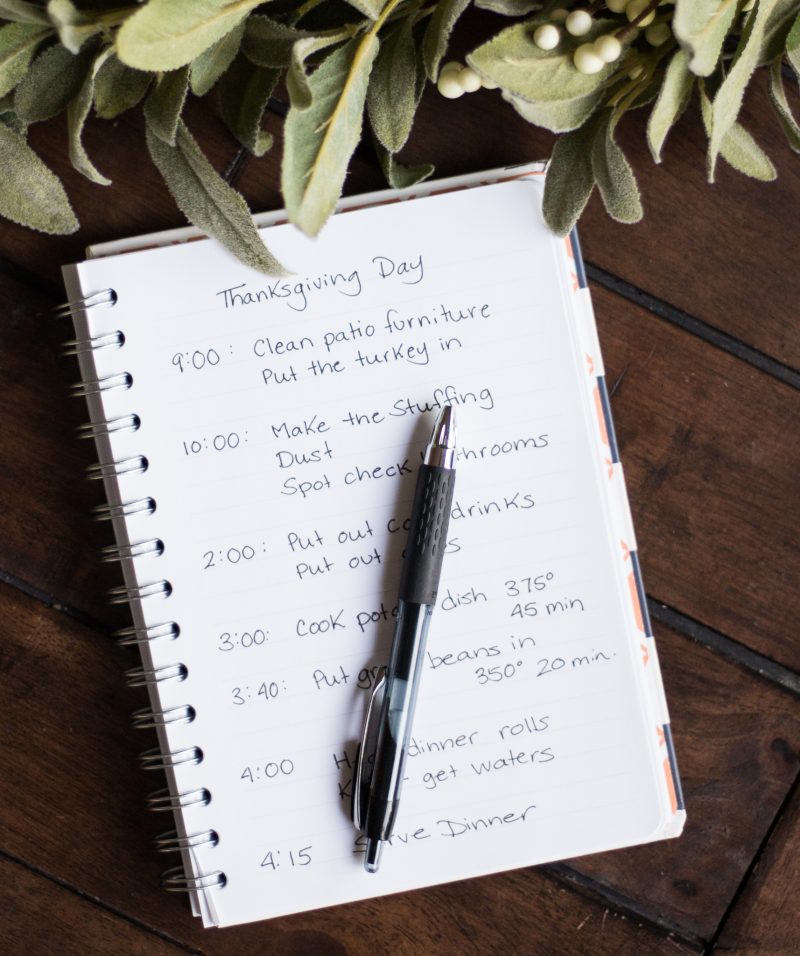 Thanksgiving Day
9:00: Clean patio furniture
Put the turkey in
10:00: Make the Stuffing
Dust
Spot check
2:00: Put out drinks
Put out
3:00: Cook dish 375°
45 min
3:40: Put beans in
350° 20 min.
4:00 dinner rolls
get waters
4:15 Serve Dinner